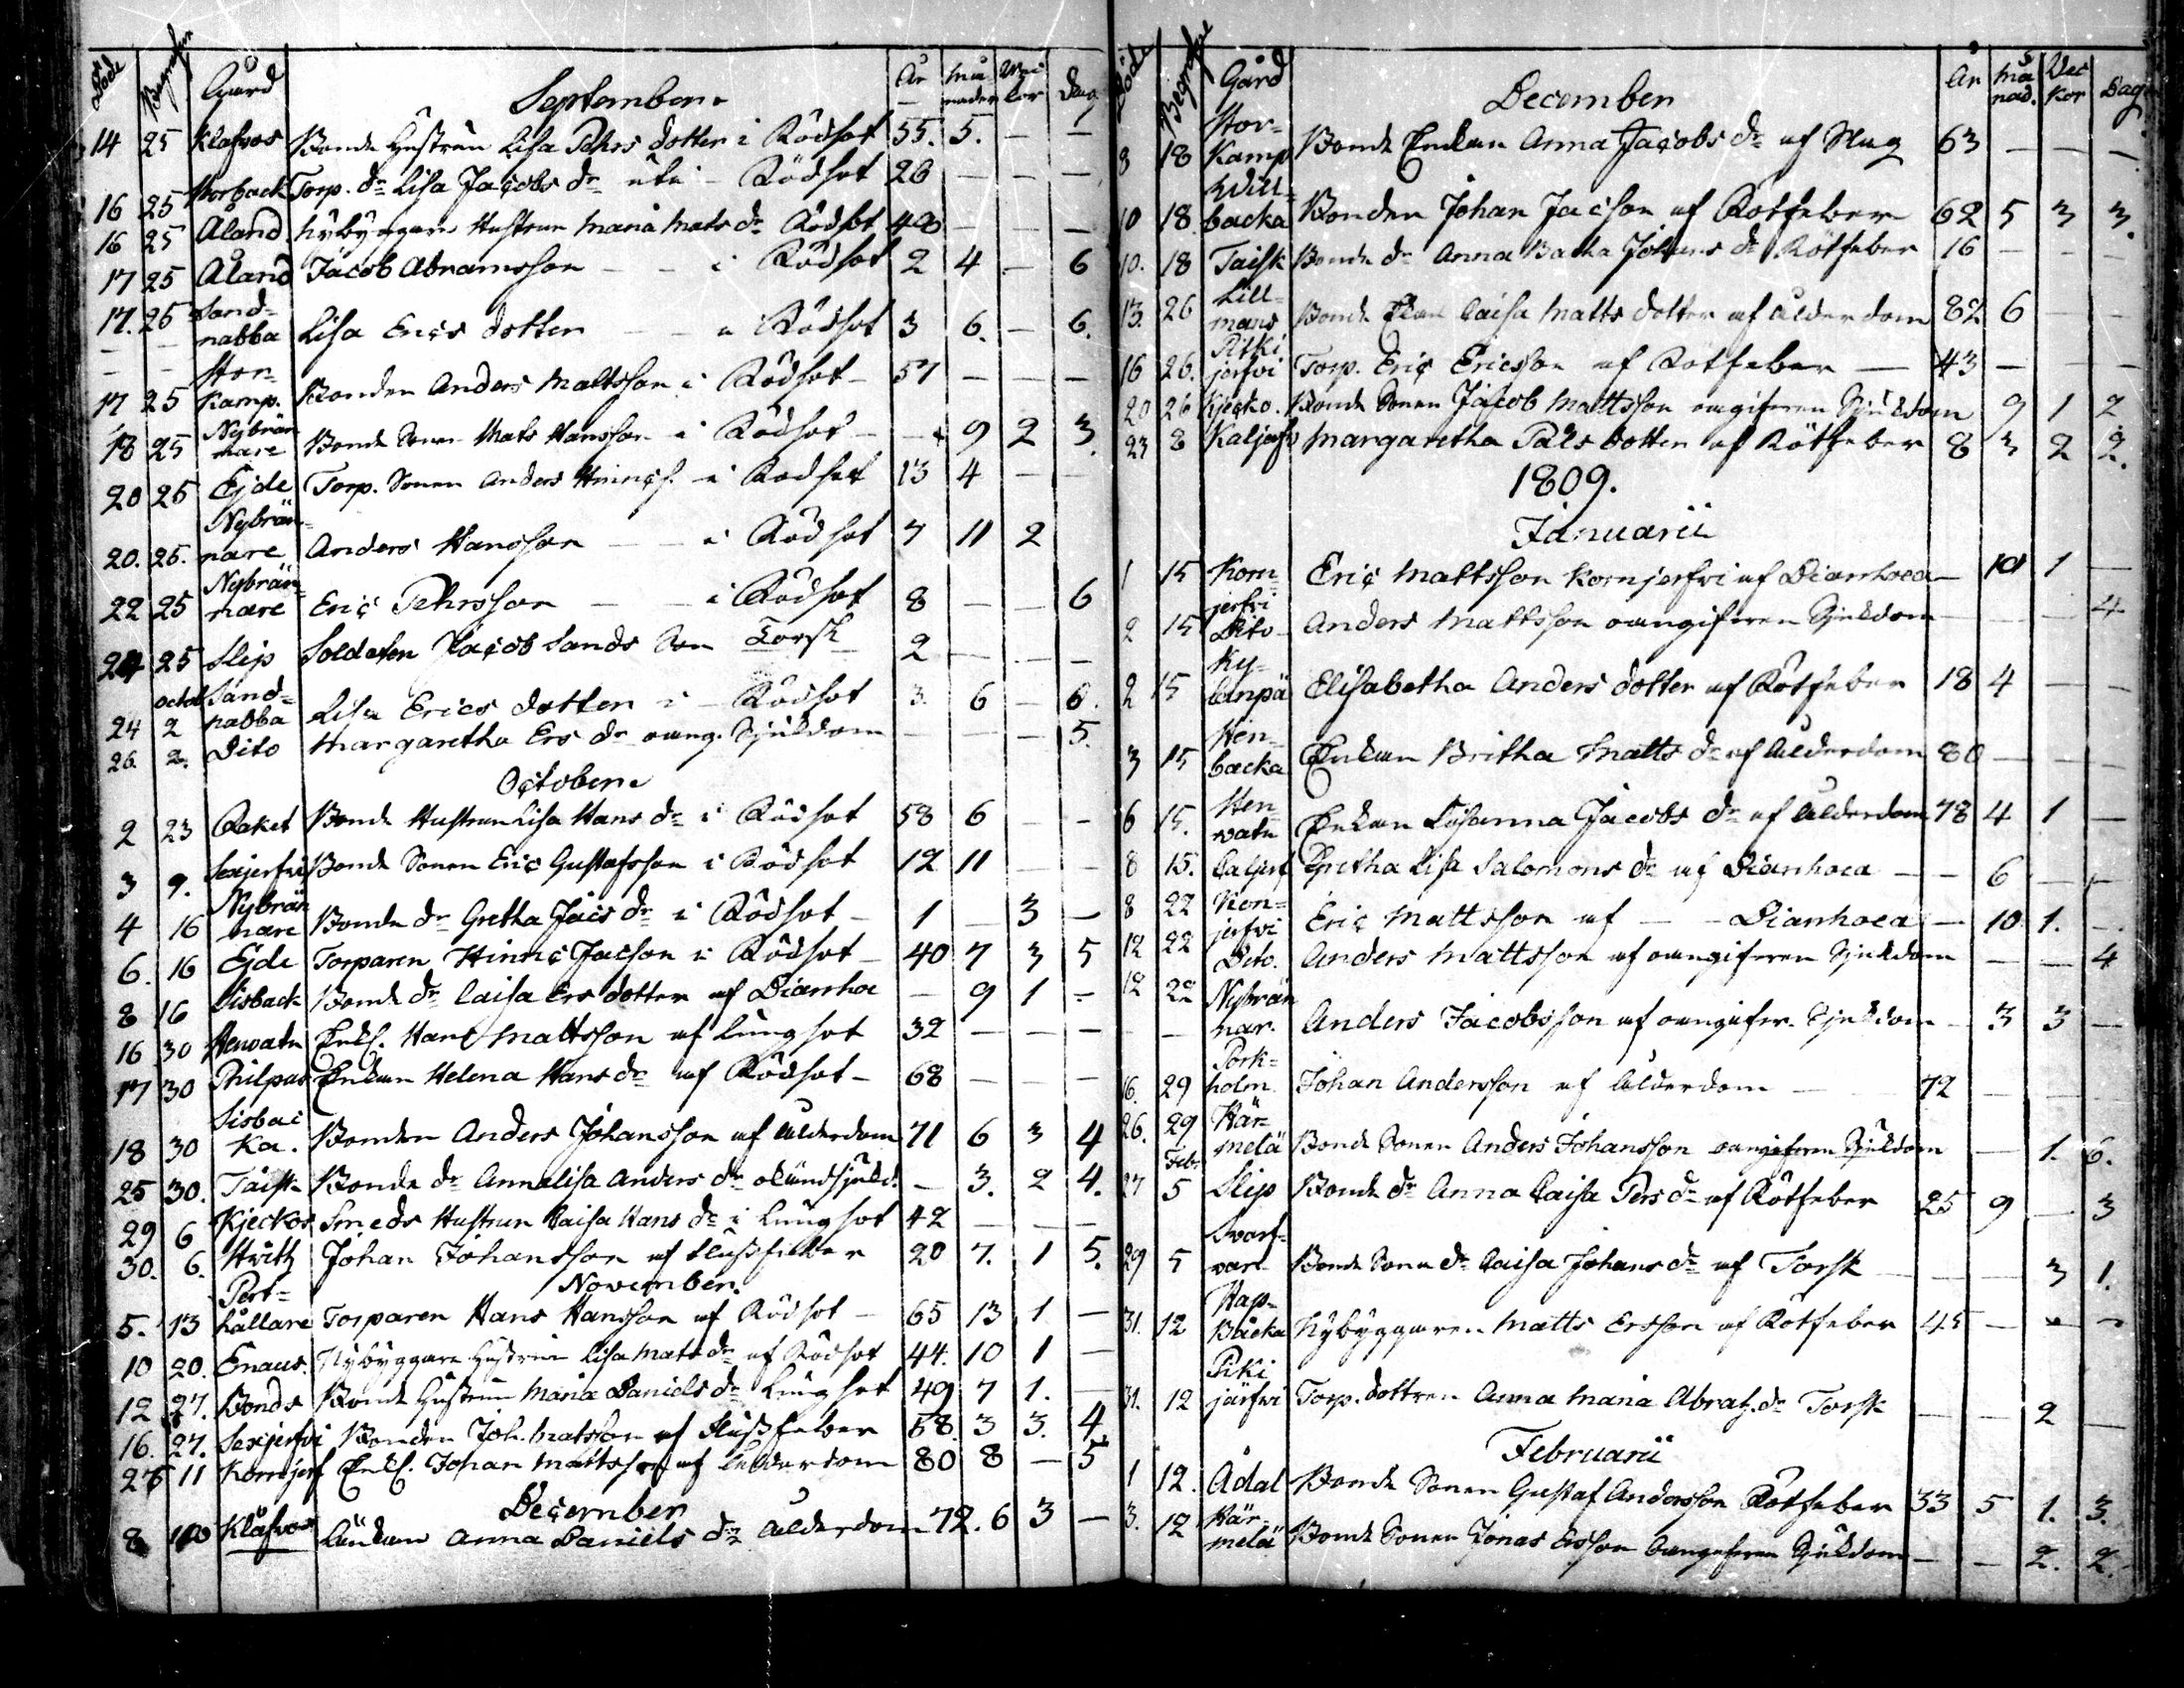 Döde Begrafne Gård År månader Veckor Dag
September
14 25 Klafvos Bonde Hustrun Lisa Pehrs dotter i Rödsot 55. 5. — —
16 25 Torp. dr Lisa Jacobs dr Rödsot 26 — — —
16 25 Åland Nybyggare Hustrun Maria Mats dr Rödsot — — —
17 25 Åland Jacob Abramsson — — i Rödsot 2 4 — 6
17. 25 Sand-
nabba Lisa Erics dotter — — i Rödsot 3 6. — 6.
Stor-
17 25 Kamp. Bonden Anders Mattsson i Rödsot — 57 — — —
Nybrän
18 25 nare Bonde Sonen Mats Hansson i Rödsot — — 9 2 3.
20 25 Ejde Torp. Sonen Anders Hinrics. i Rödsot 13 4 — —
Nybrän-
20. 25. nare Anders Hansson — — i Rödsot 7 11 2
Nybrän-
22 25 nare Eric Pehrsson — — i Rödsot 8 — — 6
24 25 Slip Soldaten Jacob Sands Son Torsk 2 — — —
octob Sand-
24 2 nabba Lisa Erics dotter i — Rödsot 3. 6 — 6.
26. 2. Dito Margaretha Ers dr oang. Sjukdom — — — 5.
October
2 23 Raket Bonde Hustrun Lisa Hans dr i Rödsot 58 6 — —
3 9. Sexjerfvi Bonde Sonen Eric Gustafsson i Rödsot 12 11 — —
Nybrän
4 16 nare Bonde dr Gretha Jacs dr i Rödsot — 1 — 3 —
6. 16 Ejde Torparen Hinric Jacson i Rödsot — 40 7 3 5
8 16 Sisback Bonde dr Caisa Ers dotter af Diarrhoe — 9 1 —
16 30 Stenvatn Enkl. Hans Mattsson af Lungsot 32 — — —
17 30 Philpus Enkan Helena Hans dr af Rödsot — 68 — — —
Sisbac
18 30 ka. Bonden Anders Johansson af Ålderdom 71 6 3 4
25 30. Taisk Bonde dr Annalisa Anders dr okänd sjukd. — 3. 2 4.
29 6 Kjeckos Smeds Hustrun Caisa Hans dr i Lungsot 42 — — —
30. 6. Johan Johansson af 20 7. 1 5.
November.
Port-
5. 13 hållare Torparen Hans Hansson af Rödsot — 65 13 1 —
10 20. Enaus. Nybyggare Hustrun Lisa Mats dr af Rödsot 44. 10 1 —
12 27. Bonds Bonde Hustrun Maria Daniels dr Lungsot 49 7 1. —
16. 27. Sexjerfvi Bonden Joh. Matsson af 58. 3 3. 4
11 Kornjerf Enkl. Johan Mattsson af Ålderdom 80 8 — 5
December
8 Klåfvos Enkan Anna Daniels dr Ålderdom 72. 6 3 —
Döde Begrafne Gård År månad. Veckor Dagar
December
Stor-
8 18 Kamp Bonde Enkan Anna Jacobs dr af Slag 63 — — —
Will-
10 18. backa Bonden Johan Jacson af Rötfeber 62 5 3 3.
10. 18 Taisk Bonde dr Anna Johans dr Rötfeber 16 — — —
Lill-
13. 26 mans Bonde Enkan Caisa Matts dotter af Ålderdom 82 6 — —
Pitki
16 26. jerfvi Torp. Eric Ericsson af Rötfeber — 43 — — —
20 26 Kjecko. Bonde Sonen Jacob Mattsson oangifven Sjukdom 9 1 2
23 8 Kaljerfv Margaretha Påls dotter af Rötfeber 8 3 2 2.
1809.
Januarii
1 15 Korn- Eric Mattsson Kornjerfvi af Diarrhoea — 10 1 —
jerfvi
2 15 Dito — Anders Mattsson oangifven Sjukdom — — — 4
Ky-
2 15 länpä Elisabetha Anders dotter af Rötfeber 18 4 — —
Sten-
3 15 backa Enkan Britha Matts dr af Ålderdom 80 — — —
Sten
6 15. vatn Enkan Susanna Jacobs dr af Ålderdom 78 4 1 —
8 15. Caljerf Gretha Lisa Salomons dr af Diarrhoea — — 6 — —
8 22 Kor-
jerfvi Eric Mattsson af — — Diarrhoea — 10 1. —
12 22 Dito. Anders Mattsson af oangifven Sjukdom — — 4
12 22 Nybrän
nar. Anders Jacobsson af oangifv. Sjukdom — 3 3 —
Pork-
16. 29 holm Johan Andersson af Ålderdom — 72 — — —
26. 29 Här-
melä Bonde Sonen Anders Johansson oangifven Sjukdom — 1. 6.
Febr.
27 5 Slip Bonde dr Anna Caisa Pers dr af Rötfeber 25 9 — 3
Svarf-
29 5 var Bonde Sone dr Caisa Johans dr af Torsk — — 3 1.
Hap-
31. 12 Backa Nybyggaren Matts Ersson af Rötfeber 45 — — —
Piki
31. 12 järfvi Torp. dottren Anna Maria Abrah. dr Torsk — — 2 —
Februarii
1 12. Ådal Bonde Sonen Gustaf Andersson Rötfeber 33 5 1. 3.
3. 12 Här-
melä Bonde Sonen Jonas Ersson oangifven Sjukdom — — 2. 2.